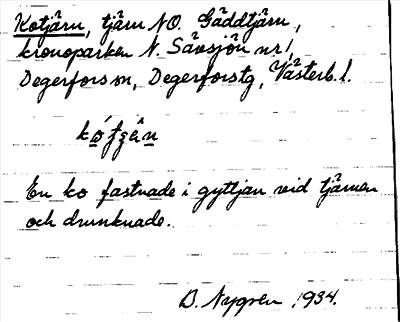 Kotjärn, tjärn NO. Gäddtjärn,
kronoparken N. Sävsjön nr 1,
Degerfors sn, Degerforstg, Västerb. l.
En ko fastnade i gyttjan vid tjärnen
och drunknade.
B. Nygren 1934.